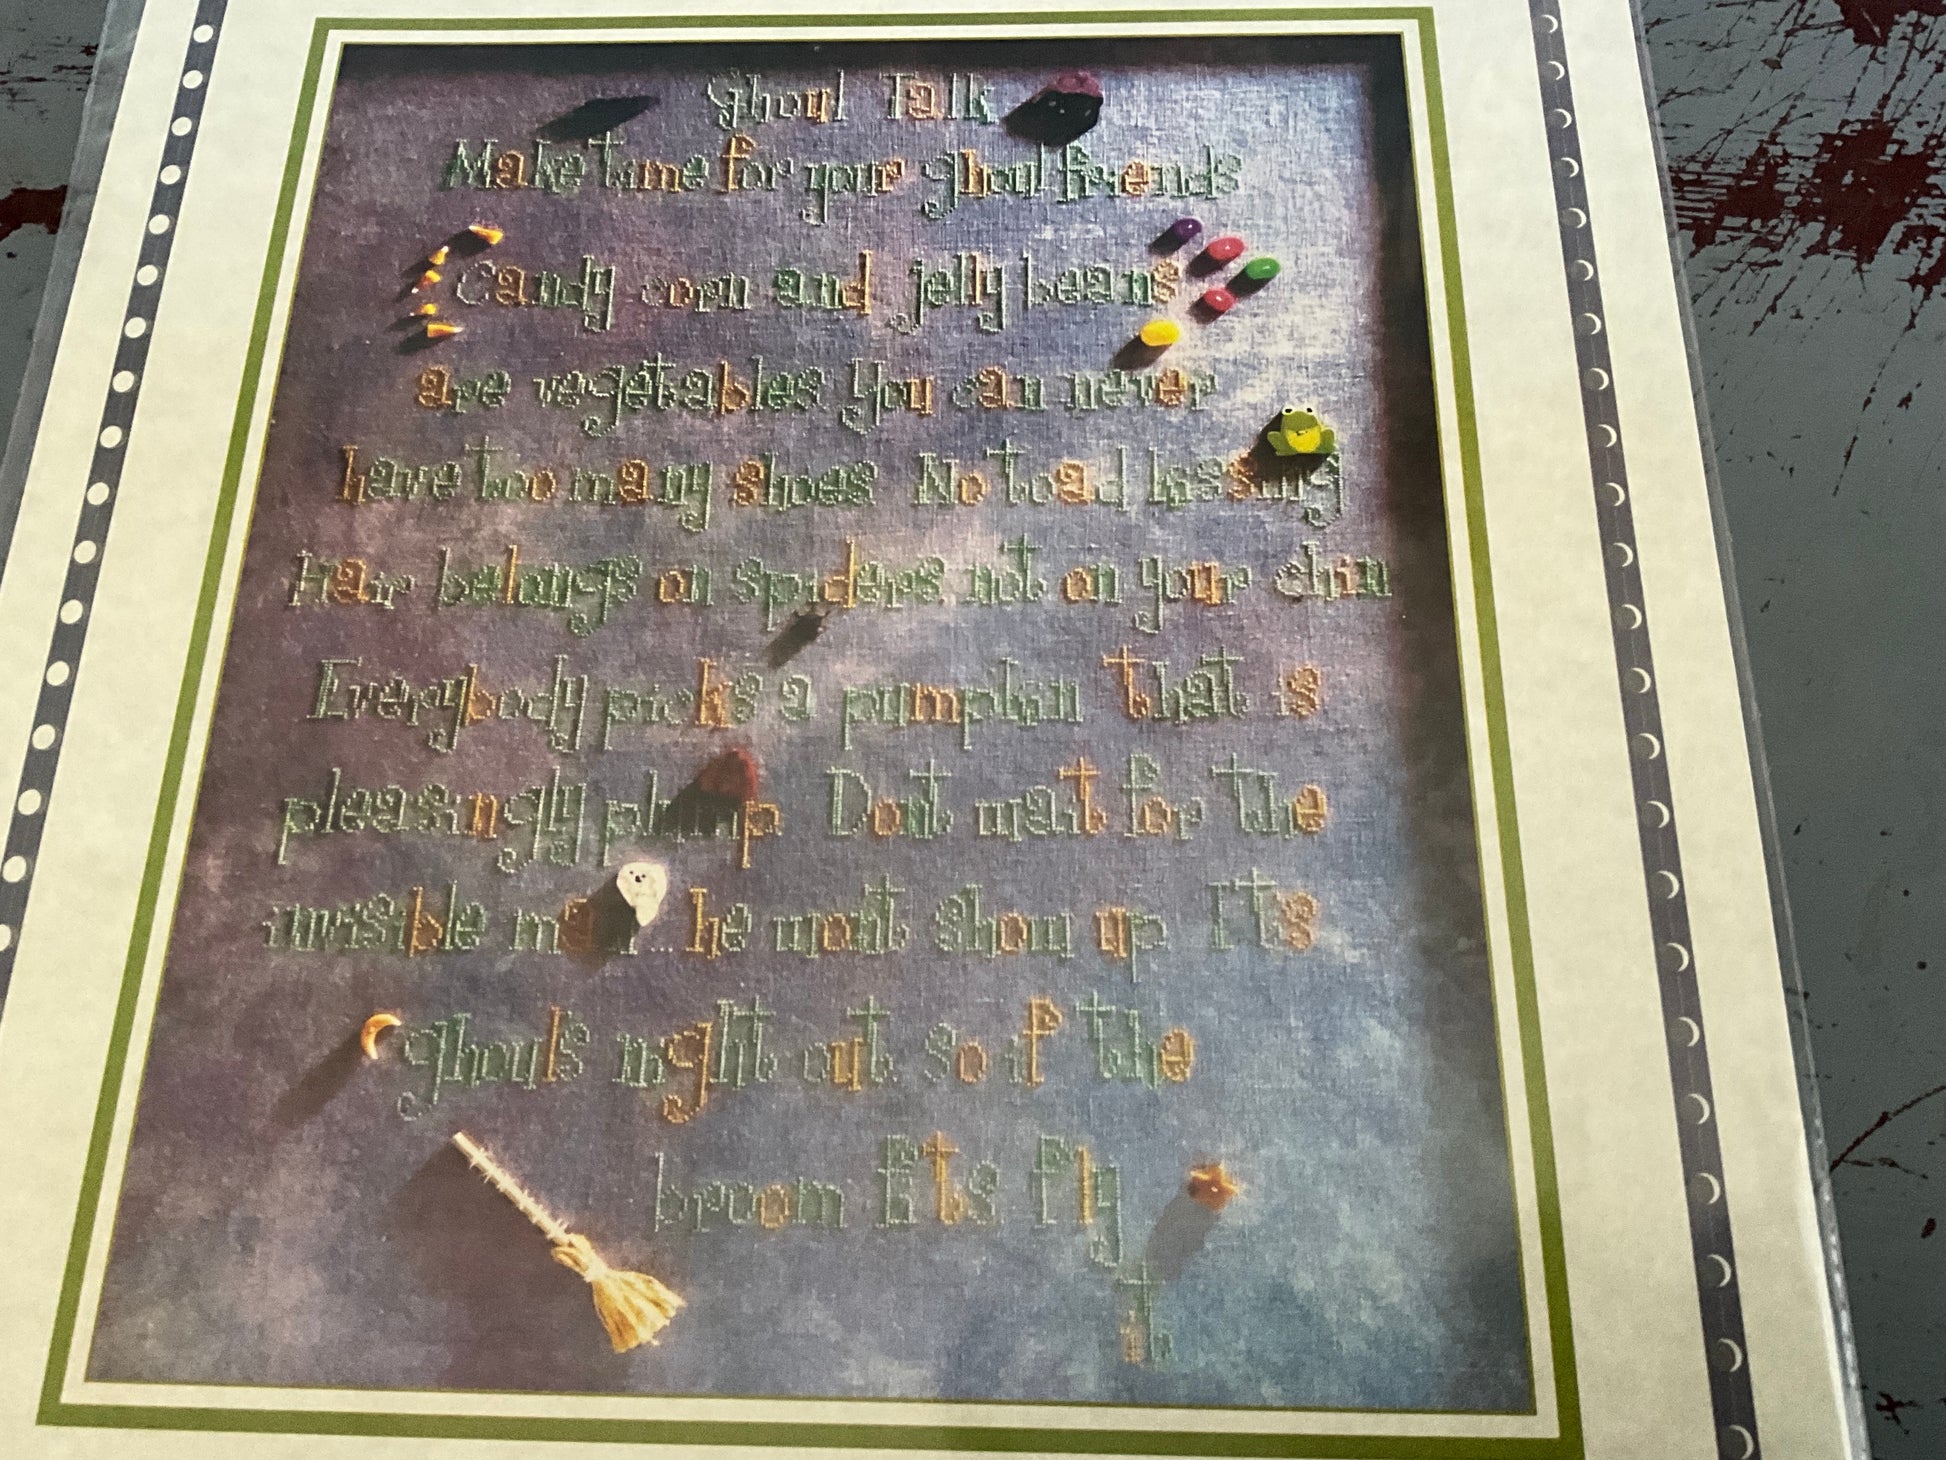 Ghoul Talk
Make time for your ghoul friends
Candy corn and jelly beans
are vegetables You can never
have too many shoes No toad kissing
Hair belongs on spiders not on your chin
Everybody picks a pumpkin that is
pleasingly plump Don't wait for the
invisible man... he won't show up It's
ghoul's night out so if the
broom fits fly
it